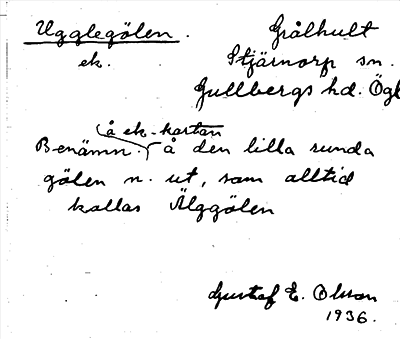 Ugglegölen. Grålhult
ek. Stjärnorp sn.
Gullbergs hd. Ögl
å ek. kartan
Benämn. å den lilla runda
gölen n. ut, som alltid
kallas Älggölen
Gustaf E. Olsson
1936.